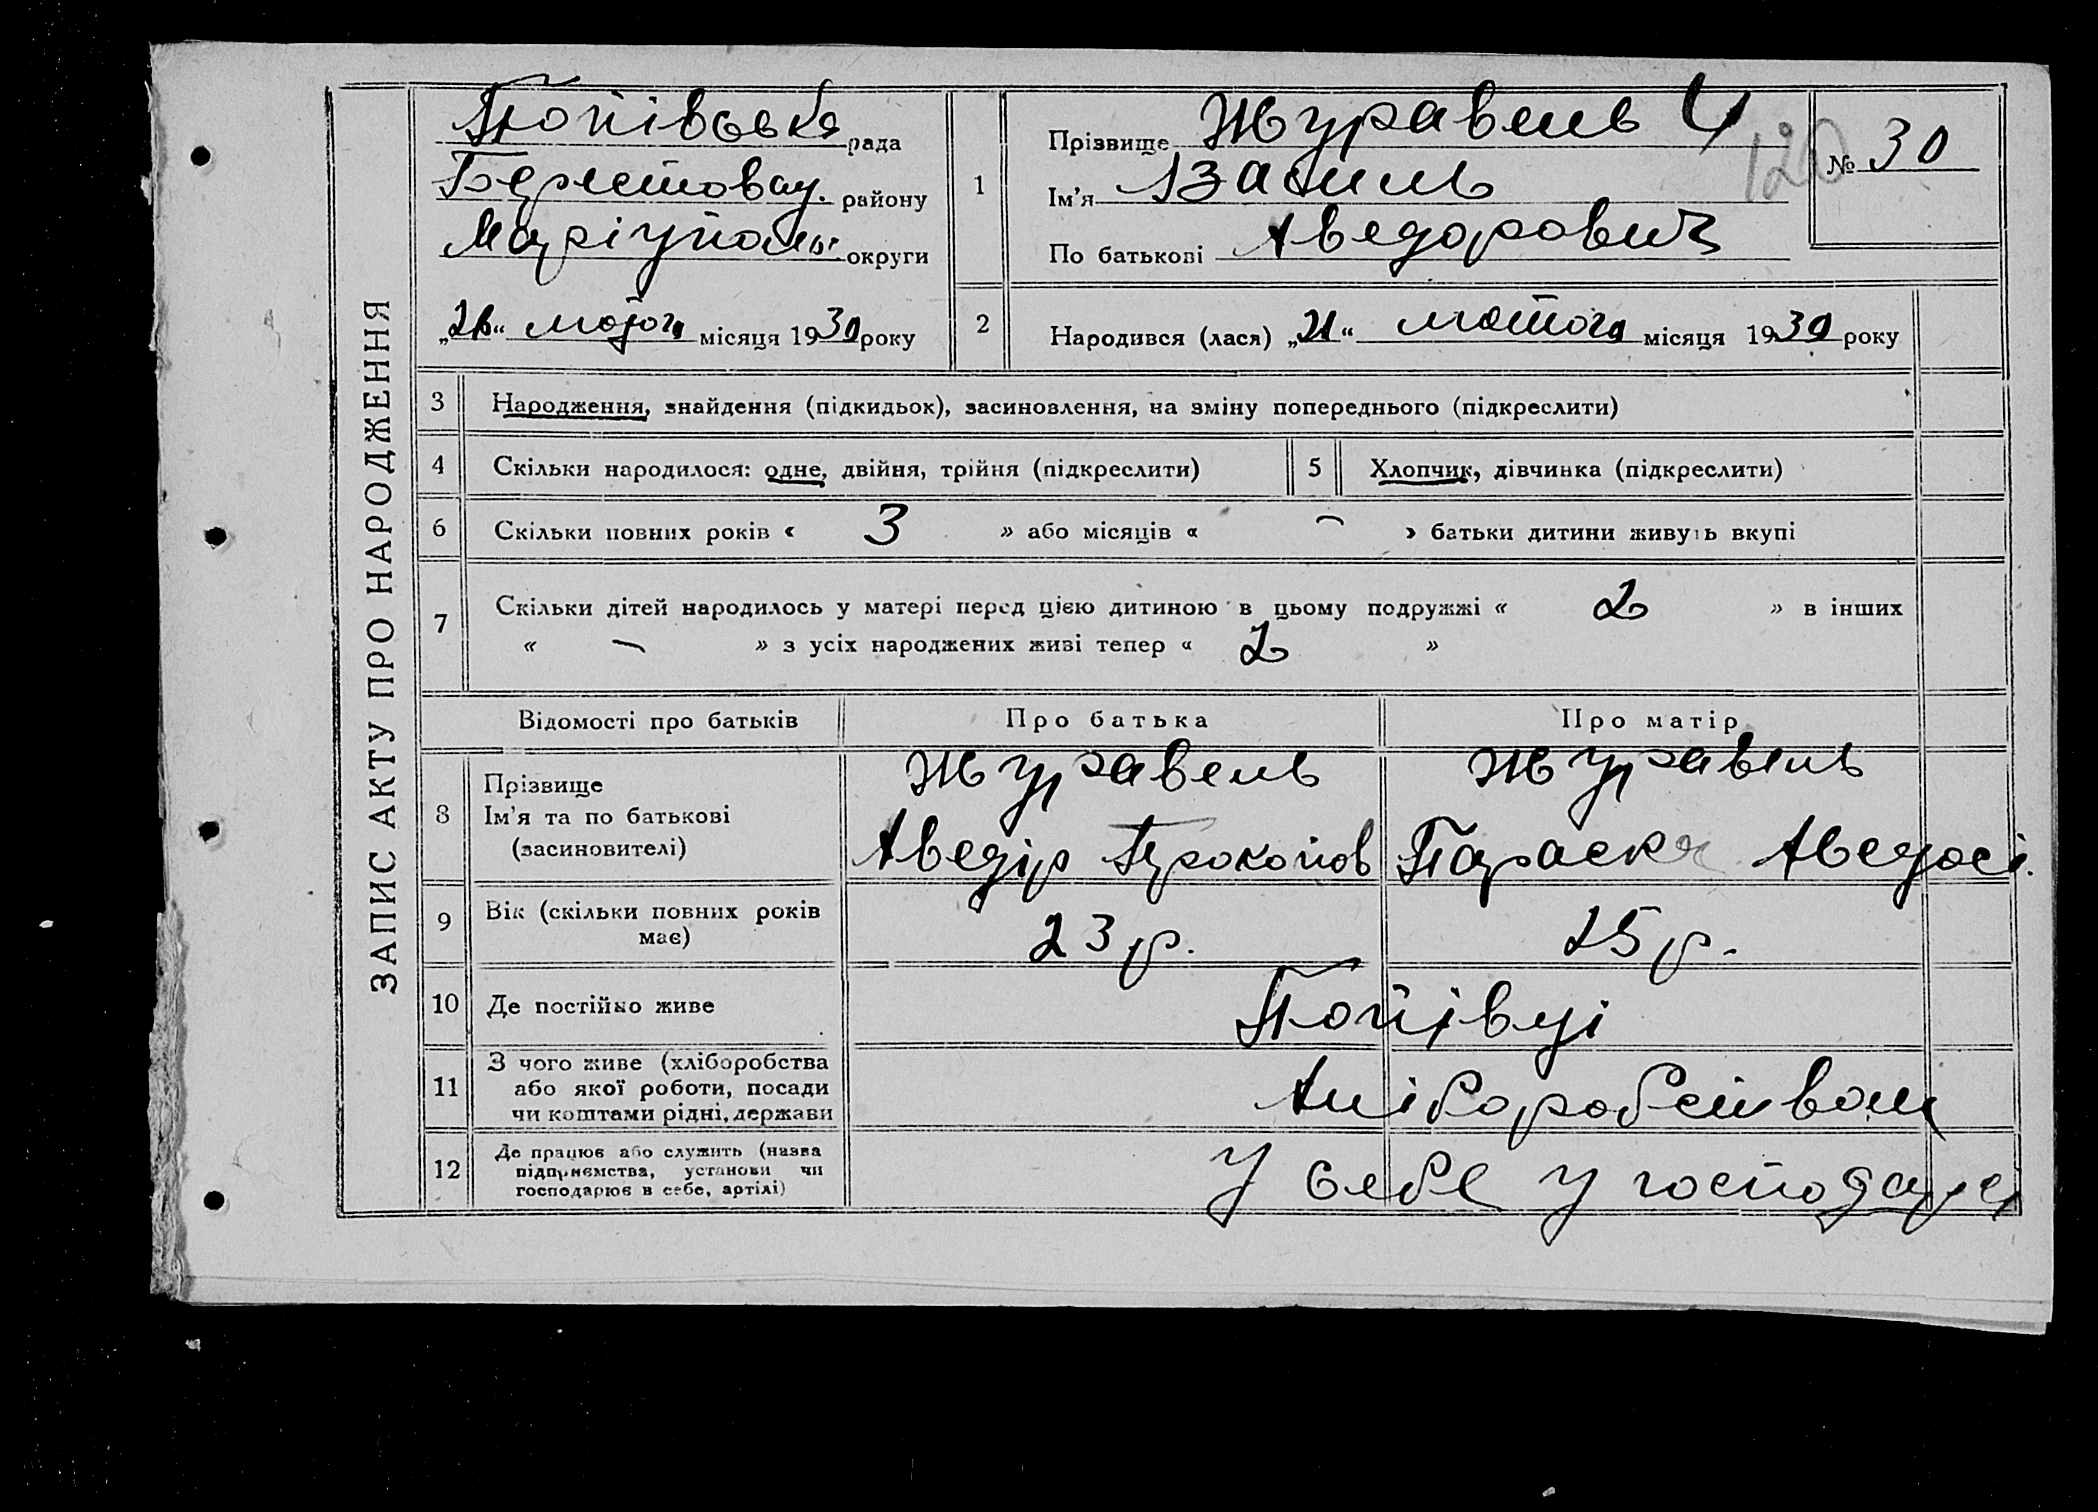 ЗАПИС АКТУ ПРО НАРОДЖЕННЯ
Попівська рада
Берестовец. району
Маріупольс. округи
„28“ лютого місяця 1930 року
1
Прізвище Журавель Ч
Ім'я Василь
По батькові Аведорович
120
№ 30
2
Народився (лася) „21“ лютого місяця 1930 року
3 Народження, знайдення (підкидьок), засиновлення, на зміну попереднього (підкреслити)
4 Скільки народилося: одне, двійня, трійня (підкреслити)
5 Хлопчик, дівчинка (підкреслити)
6 Скільки повних років « 3 » або місяців « – » батьки дитини живуть вкупі
7 Скільки дітей народилось у матері перед цією дитиною в цьому подружжі « 2 » в інших
« – » з усіх народжених живі тепер « 2 »
Відомості про батьків Про батька Про матір
8 Прізвище
Ім'я та по батькові
(засиновителі)
Журавель
Аведір Прокопов
Журавель
Параска Аведосі.
9 Вік (скільки повних років
має)
23 р. 25 р.
10 Де постійно живе Попівці
11 З чого живе (хліборобства
або якої роботи, посади
чи коштами рідні, держави
Хліборобством
12 Де працює або служить (назва
підприємства, установи чи
господарює в себе, артілі)
У себе у господар